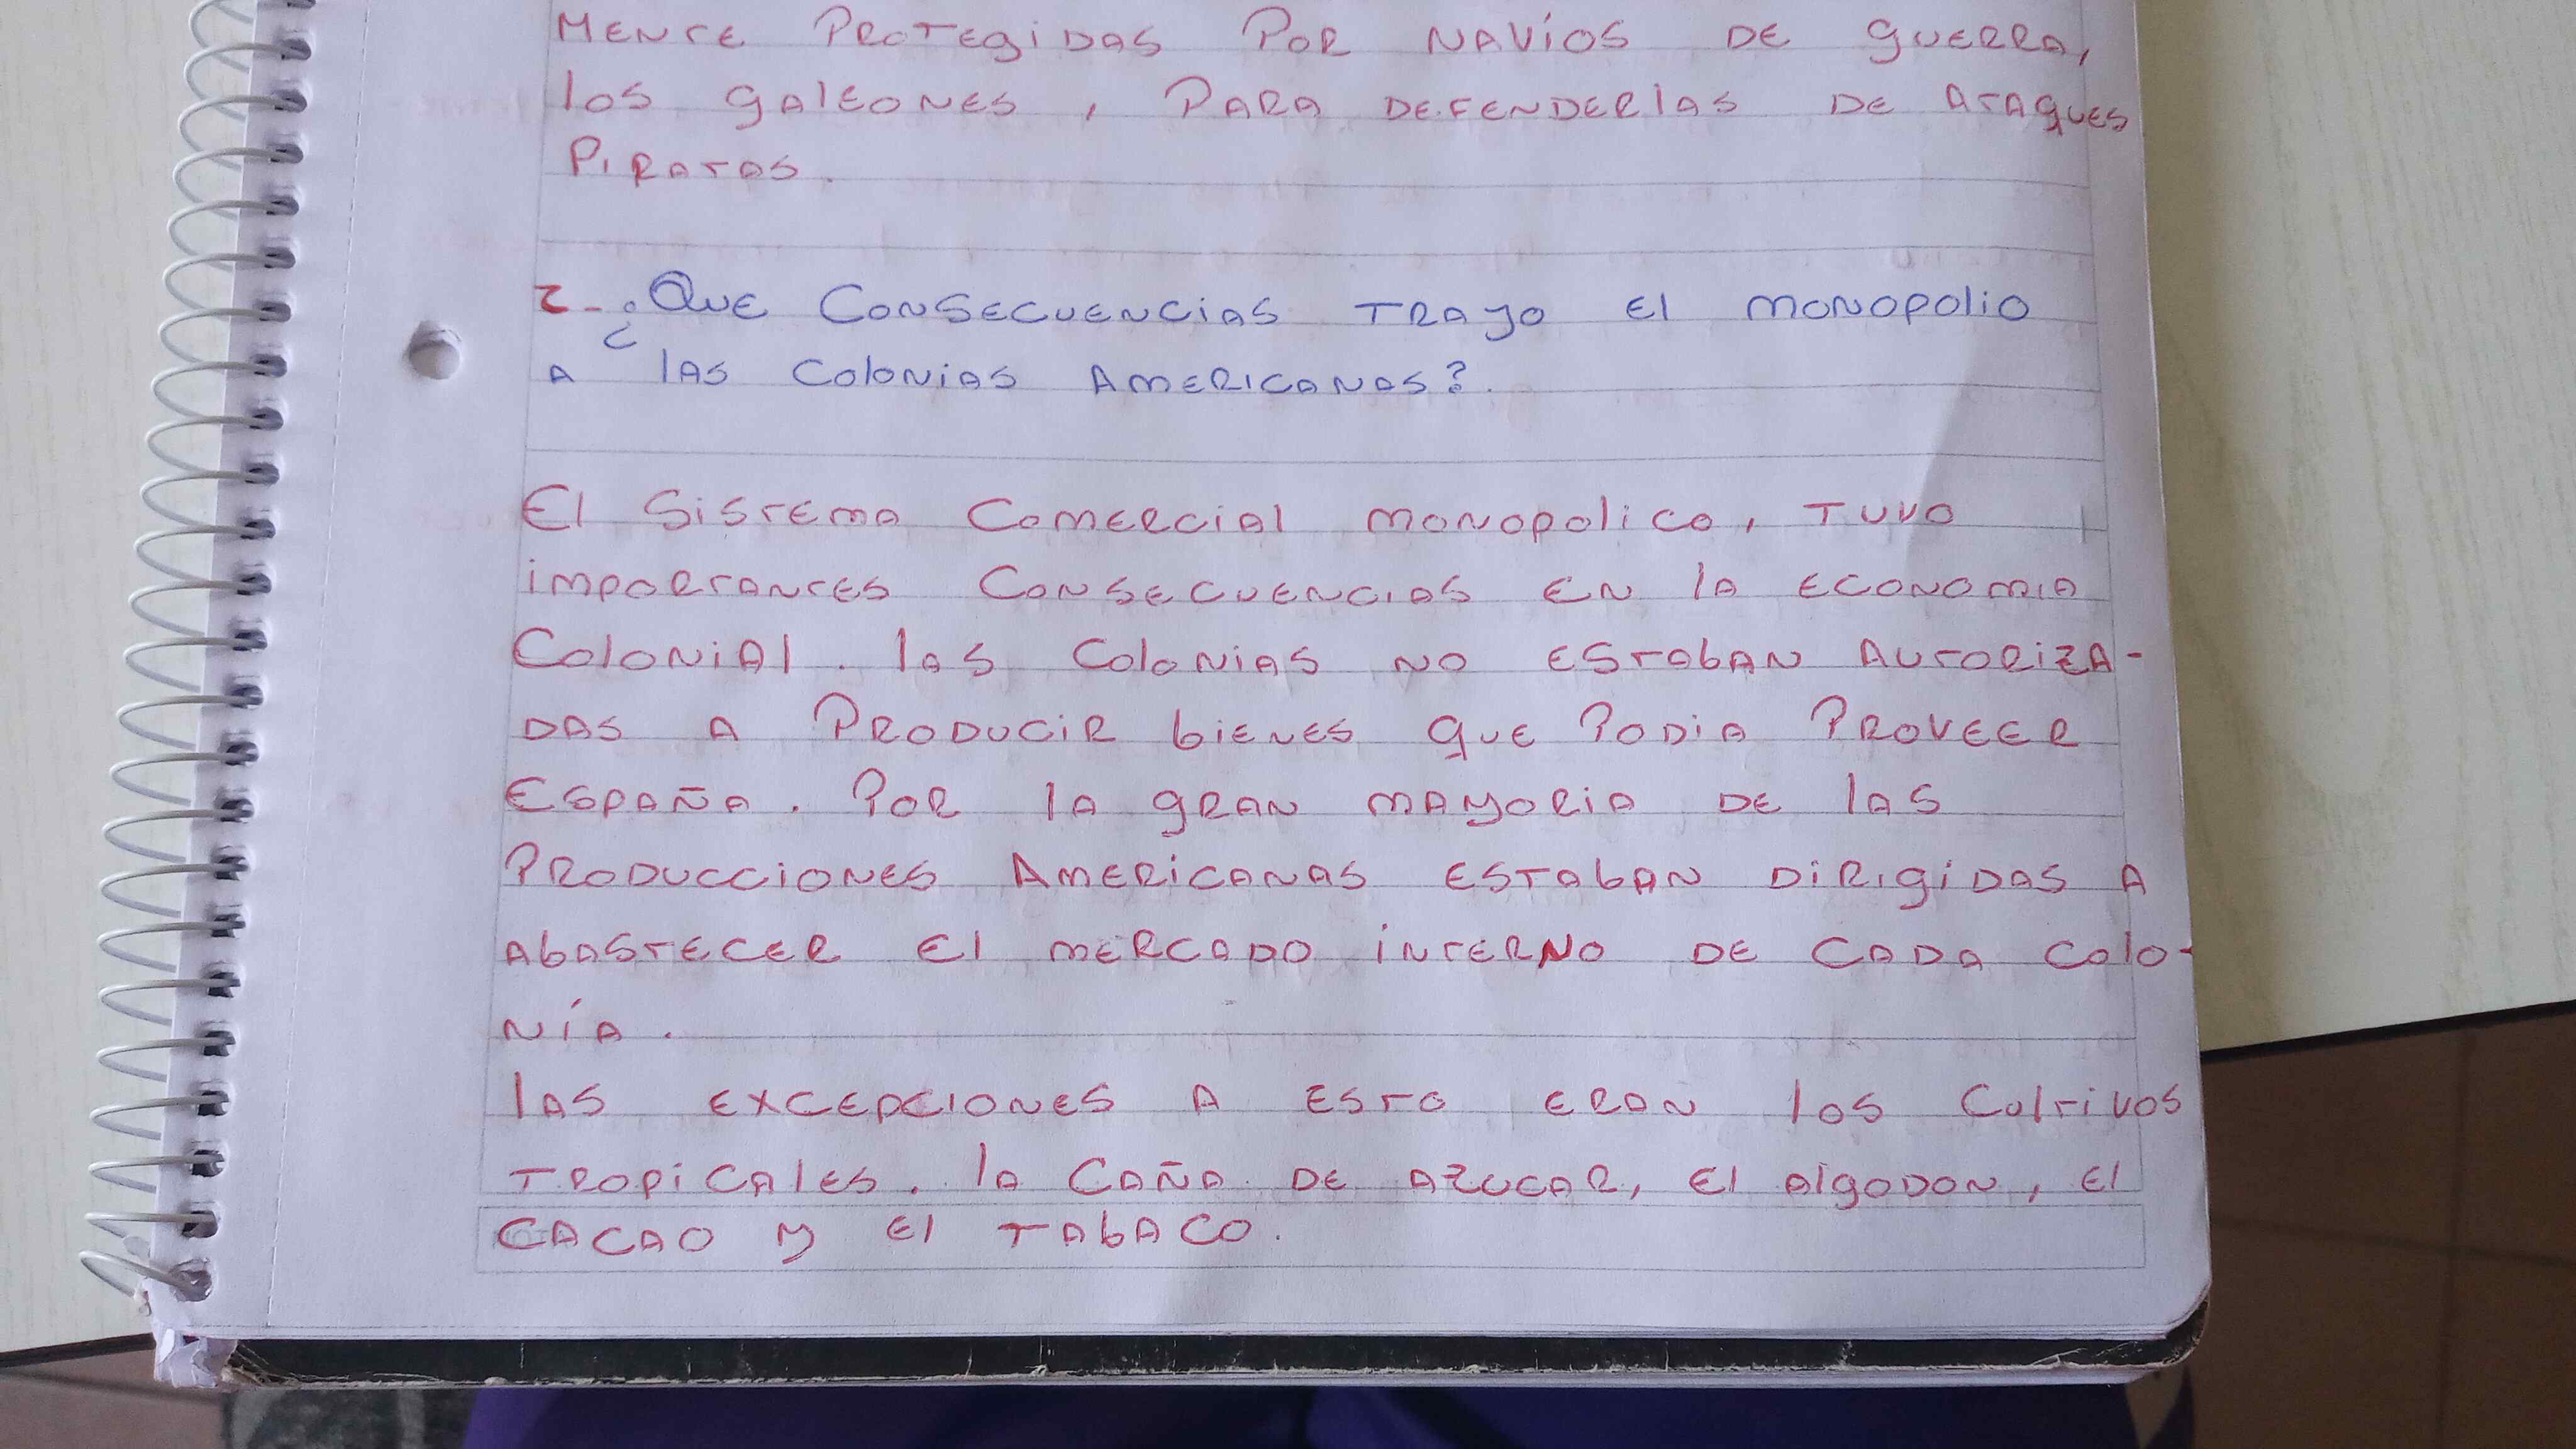 MENTE PROTEGIDAS POR NAVÍOS DE GUERRA,
los galeones, PARA DEFENDERlas DE ATAQUES
PIRATAS.
2-. ¿QUE CONSECUENCIAS TRAJO El MONOPOLIO
A las COLONIAS AMERICANAS?.
El SISTEMA COMERCIAL MONOPOLICO, TUVO
IMPORTANTES CONSECUENCIAS EN la ECONOMIA
COLONIAL. las COLONIAS NO ESTABAN AUTORIZA-
DAS A PRODUCIR BIENES QUE PODIA PROVEER
ESPAÑA. POR la GRAN MAYORIA DE las
PRODUCCIONES AMERICANAS ESTABAN DIRIGIDAS A
ABASTECER El MERCADO INTERNO DE CADA COLO-
NÍA.
las EXCEPCIONES A ESTO ERAN los CULTIVOS
TROPICALES. la CAÑA DE AZUCAR, El ALGODON, El
CACAO y El TABACO.